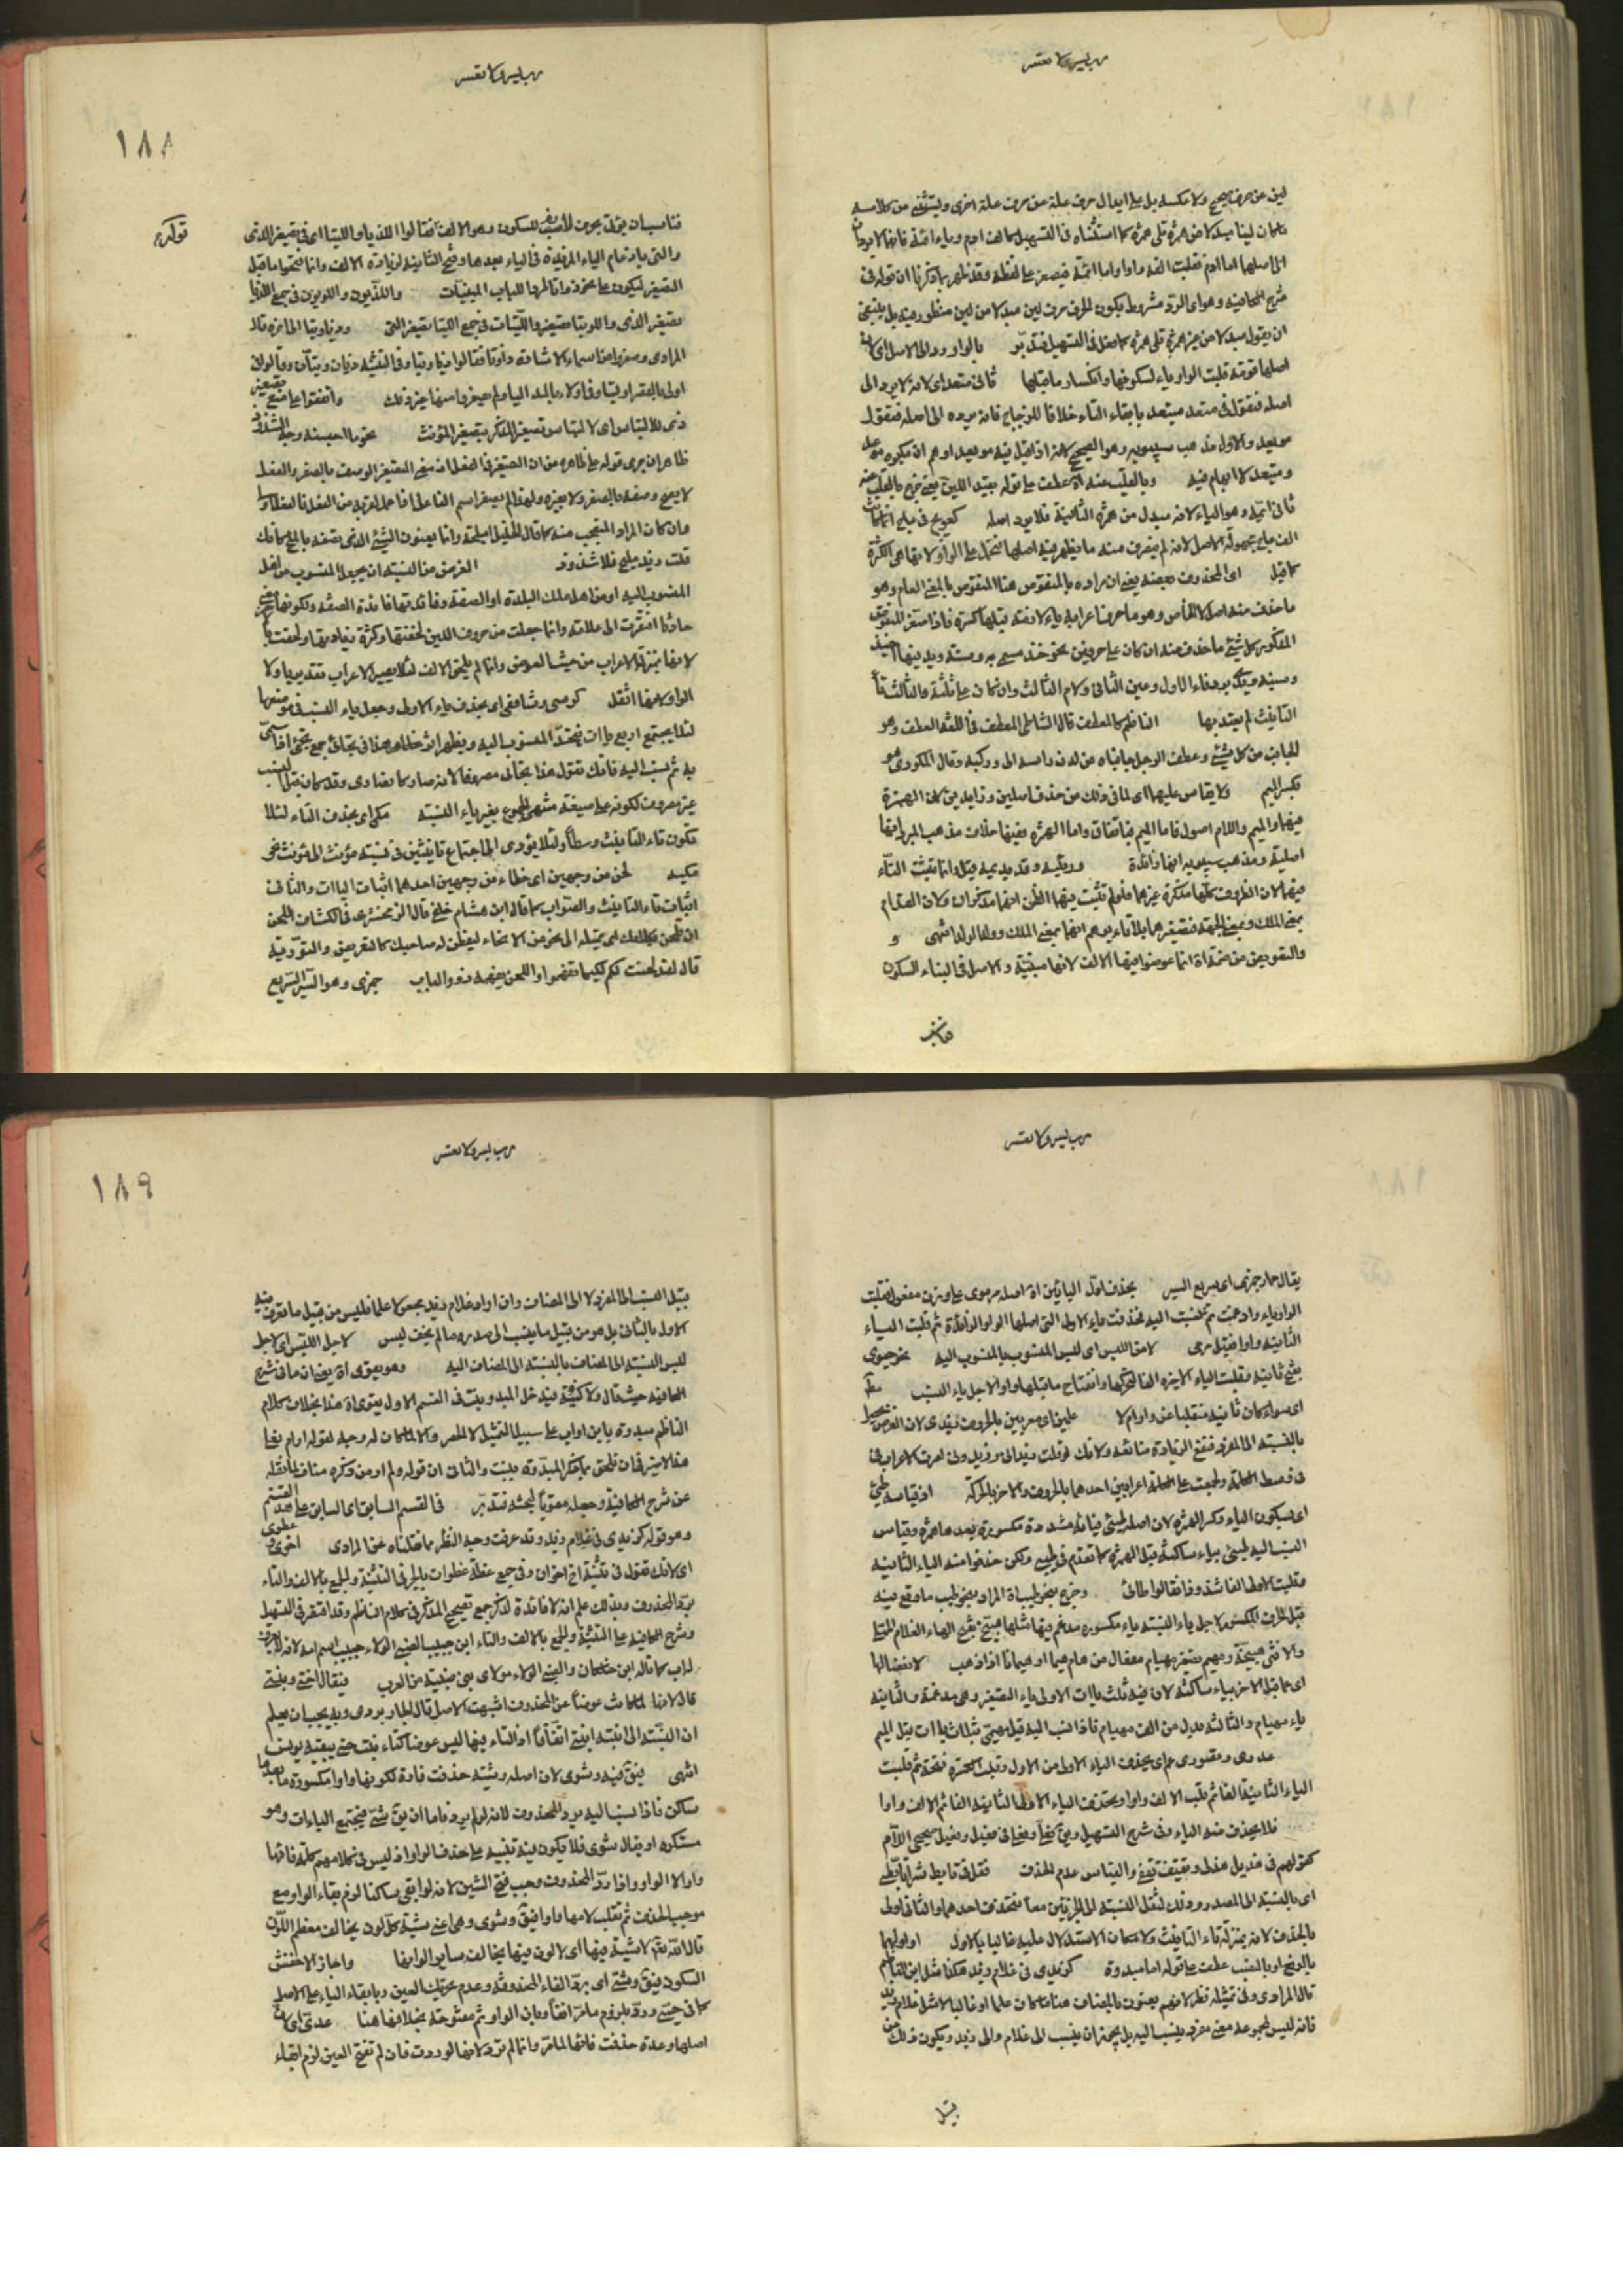 رب يسر ولا تعسر
لين عن حرف صحيح ولا عكسه بل على ابدال حرف علة عن حرف علة اخرى ويستثنى من كلامه
ما كان لينا مبدلا من همزة تلى همزة كما استثناه فى التسهيل كالف ادم وياء ائمة فانها لا يردان
الى اصلهما اما ادم فقلبت الفه واوا واما ائمة فيصغر على لفظه وقد ظهر بما ذكرنا ان قوله فى
شرح الكافية وهو اى الرد مشروط بكون الحرف حرف لين مبدلا من لين منظور فيه بل ينبغى
ان يقول مبدلا من غير همزة تلى همزة كما فعل فى التسهيل فتدبر بالواو ردا الى الاصل اى لان
اصلها قومة قلبت الواو ياء لسكونها وانكسار ما قبلها ثانى متعد اى لانه لا يرد الى
اصله فتقول فى متعد متيعد بابقاء التاء خلافا للزجاج فانه يرده الى اصله فيقول
مويعد والاول مذهب سيبويه وهو الصحيح لانه اذا قيل فيه مويعد اوهم ان مكبره موعد
ومتيعد لا ابهام فيه وبالقلب عنه اه عطف على قوله بقيد اللين يعنى خرج بالقلب عنه
ثانى ائمة وهو الياء لانه مبدل من همزة الثانية فلا يرد اصله كعويج فى عاج انما كانت
الف عاج مجهولة الاصل لانه لم يتصرف منه ما يظهر فيه اصلها فتحمل على الواو لانها هى الكثرة
كما قيل اى المحذوف بعضه يعنى ان مراده بالمنقوص هنا المنقوص بالمعنى العام وهو
ما حذف منه اصل لا الخاص وهو ما حرف اعرابه ياء لازمة قبلها كسرة فاذا صغر المنقوص
المذكور كمل بشئ ما حذف منه ان كان على حرفين نحو خذ مسمى به وسنة ويد فيها اخيذ
وسنية ويدية برد فاء الاول وعين الثانى ولام الثالث وان كان على ثلثة والثالث تاء
التأنيث لم يعتد بها الناظم كالمعطف قال الشاطبى المعطف فى اللغة العطف وهو
الجانب من كل شئ وعطف الرجل جانباه من لدن راسه الى ووركيه وقال المكودى هو
بكسر الميم ولا يقاس عليهما اى لما فى ذلك من حذف اصلين وزايد من كان الهمزة
فيهما والميم واللام اصول فاما الميم فباتفاق واما الهمزة ففيها خلاف مذهب المبرد انها
اصلية ومذهب سيبويه انها زائدة وريئة وقديديمة قيل وانما تثبت التاء
فيهما لان الظروف كلها مذكرة غيرهما فلو لم تثبت فيهما الظن انهما مذكران ولان القدام
بمعنى الملك وبمعنى الجهة فتصغيرهما بلا تاء يوهم انهما بمعنى الملك وولد الولد انتهى و
والتعويض من ضمه اه انما عوضوا فيها الالف لانها مبنية والاصل فى البناء السكون
فناسب
رب يسر ولا تعسر
١٨٨
فناسب ان يؤتى بحرف لازم للسكون وهو الالف فقالوا اللذيا واللتيا اى فى تصغير الذى
والتى بادغام الياء المزيدة فى الياء بعدها وفتح الثانية لزيادة الالف وانما فتحوا ما قبل
التصغير ليكون على نحو ذوا تا لحرف الباب المبنيات واللذيون واللويون فى جمع اللذيا
تصغير الذى واللويتا تصغير واللتيات فى جمع اللتيا تصغير التى وذيا وتيا الى اخره قال
المرادى وصغروا من اسماء الاشارة ذا وتا فقالوا ذيا وتيا وفى التثنية ذيان وتيان وقالوا فى
اولى بالقصر اوليا وفى اولاء بالمد اليا ولم يصغروا منها غير ذلك واتفقوا على منع تصغير
ذى للالتباس اى لالتباس تصغير المذكر بتصغير المؤنث نحو ما احيسنه وجه الشذوذ
ظاهر ان يرى قوله على ظاهره من ان التصغير فى الفعل لانه معنى التصغير الوصف بالصغر والفعل
لا يصح وصفه بالصغر ولا بغيره ولهذا لم يصغر اسم الفاعل اذا عمل لقربه من الفعل فالفعل اولى
وان كان المراد المتعجب منه كما قال الخليل اميلحه وانما يعنون الشئ الذى يصفه بالملح كانك
قلت زيد مليح فلا شذوذ الغرض من النسبة ان يجعل المنسوب من ال
المنسوب اليه او من اهل تلك البلدة او الصفة وفائدتها فائدة الصفة ولكونها معنى
حادثا افتقرت الى علامة وانما جعلت من حروف اللين لخفتها وكثرة زيادتها ولحقت باخره
لانها بمنزلة الاعراب من حيث العروض وانما لم يلحق الالف لئلا يصير الاعراب تقديريا ولا
الواو لانها اثقل كرسى وشافعى اى بحذف ياء الاولى وجعل ياء النسب فى موضعها
لئلا يجتمع اربع ياات فيتحد المنسوب اليه ويظهر اثر هذا فى بخاتى جمع بختى اذا سمى
به ثم نسب اليه فانك تقول هذا بخاتى مصروفا لانه صار كانصارى وقد كان قبل النسب
غير مصروف لكونه على صيغة منتهى الجموع بغير ياء النسبة مكى اى بحذف التاء لئلا
تكون تاء التأنيث وسطا ولئلا يؤدى الى اجتماع تانيثين فى نسبة مؤنث الى مؤنث نحو
مكية لحن من وجهين اى خطاء من وجهين احدهما اثبات الياات والثانى
اثبات تاء التأنيث والصواب كما قال ابن هشام خلفى قال الزمخشرى فى الكشاف اللحن
ان تلحن بكلامك اى تميله الى نحو من الانحاء ليفطن له صاحبك كالتعريض والتورية
قال لقد لحنت لكم لكيما تفهموا واللحن يفهمه ذوو الالباب جمزى وهو السير السريع
قوله
رب يسر ولا تعسر
يقال حمار جمزى اى سريع السير بحذف اول اليائين اه اصله مرموى على وزن مفعول قلبت
الواو ياء وادغمت ثم نسبت اليه فحذفت ياء الاولى التى اصلها الواو الزائدة ثم قلبت الياء
الثانية واوا فقيل مرمى لامن اللبس اى لبس المنسوب بالمنسوب اليه نحو حيوى
بفتح ثانية فقلبت الياء الاخيرة الفا لتحركها وانفتاح ما قبلها واوا لاجل ياء النسب
اى سواء كان ثانيه منقلبا عن واو ام لا علمين اى معربين بالحروف زيدى لان الغرض يحصل
بالنسبة الى المفرد فتقع الزيادة ضائعة ولانك لو قلت زيدانى وزيدونى لصرت الاعراب فى
فى وسط الكلمة ولجمعت على الكلمة اعرابين احدهما بالحروف والاخر بالحركة اذ قياسه طيئ
اى بسكون الياء وكسر الهمزة لان اصله طيئ بياء مشددة مكسورة بعدها همزة وقياس
النسب اليه طيئى بياء ساكنة قبل الهمزة كما تقدم فى طيب ولكن حذفوا منه الياء الثانية
وقلبت الاولى الفا شذوذا فقالوا طائى وخرج بنحو طيب اه المراد بنحو طيب ما وقع فيه
قبل الحرف المكسور لاجل ياء النسبة ياء مكسورة مدغم فيها مثلها هبيخ بفتح الهاء الغلام الممتلى
والانثى هبيخة ومهيم تصغير مهيام مفعال من هام هيما او هيمانا اذا ذهب لانفصالها
اى ما قبل الاخر بياء ساكنة لان فيه ثلث ياات الاولى ياء التصغير وهى مدغمة والثانية
ياء مهيام والثالثة بدل من الف مهيام فاذا نسب اليه قيل مهيمى بثلاث ياات قبل الميم
عدوى وقصوى اى بحذف الياء الاولى من الاول وقلب الكسرة فتحة ثم قلبت
الياء الثانية الفا ثم قلب الالف واوا وبحذف الياء الاولى الثانية الفا ثم الالف واوا
فلا يحذف منه الياء وفى شرح التسهيل وبن كفعا وفعا فى فعيل وفعيل صحيحى اللام
كقولهم فى هذيل هذلى وثقيف ثقفى والقياس عدم الحذف فقل فى تأبط شرا تأبطى
اى بالنسبة الى الصدر وذلك لثقل النسبة الى الجزئين معا فتحذف احدهما والثانى اولى
بالحذف لانه بمنزلة تاء التأنيث ولامكان الاستدلال عليه غالبا بالاول او اوليهما
بالرفع او بالنصب عطف على قوله اما مبدوة كزيدى فى غلام زيد هكذا مثل ابن الناظم
قال المرادى وفى تمثيله نظر لانهم يعنون بالمضاف هنا ما كان علما او غالبا لا مثل غلام زيد
فانه ليس لمجموعه معنى مفرد ينسب اليه بل يجوز ان ينسب الى غلام والى زيد ويكون ذلك من
قبيل
رب يسر ولا تعسر
١٨٩
قبيل النسب الى المفرد لا الى المضاف وان اراد غلام زيد بجعله علما فليس من قبيل ما تعرف فيه
الاول بالثانى بل هو من قبيل ما ينسب الى صدره ما لم يخف لبس لاجل اللبس اى لاجل
لبس النسبة الى المضاف بالنسبة الى المضاف اليه وهو يقوى اه يعنى ان ما فى شرح
الكافية حيث قال ولا كنية فيدخل المبدو ببنت فى القسم الاول يقوى اه هذا بخلاف كلام
الناظم مبدوة بابن او اب على سبيل التمثيل لا الحصر والا لما كان له وجه لقوله او لم يعا
هذا لا غير فان تلحق بما ذكر المبدوة ببنت والثانى ان قوله ولم ار من ذكره مناف لما نقله
عن شرح الكافية وجعله مقويا لبحثه فتدبر فى القسم السابق اى السابق على هذا القسم
وهو قوله كزيدى فى غلام زيد وقد عرفت وجه النظر مما نقلناه عن المرادى اخوى وعضوى
اى لانك تقول فى تثنية اخ اخوان وفى جمع عضة عضوات بالجر فى التثنية والجمع بالالف والتاء
برد المحذوف وبذلك علم انه لا فائدة لذكر جمع تصحيح المذكر فى كلام الناظم وقد اقتصر فى التسهيل
وشرح الكافية على التثنية والجمع بالالف والتاء ابن حبيب الضبى الولاء حبيب اسم امه لانه لا يعرف
له اب كما قاله ابن خلكان والضبى الولاء مولى بنى ضبة من العرب فيقال اختى وبنتى
قال لانها لما كانت عوضا عن المحذوف اشبهت الاصل قال الجاربردى وبه يجب ان يعلم
ان النسبة الى ابنة ابنى اتفاقا اذ التاء فيها ليس عوضا كتاء بنت حتى يبقيه يونس
انتهى فيق فيه وشوى لان اصله وشية حذفت فاؤه لكونها واوا مكسورة ما بعدها
ساكن فاذا نسبنا اليه يرد المحذوف لانه لو لم يرد فاما ان يق شى فيجتمع الياءات وهو
مستكره او يقال شوى فلا يكون فيه تنبيه على حذف الواو اذ ليس فى كلامهم كلمة فائها
واو الا الواو واذا رد المحذوف وجب فتح الشين لانه لو ابقى ساكنا لزم بقاء الواو مع
موجب الحذف ثم تقلب لامها واوا فيق وشوى وهى اعنى شية كل لون يخالف معظم اللون
قال الله تع لا شية فيها اى لا لون فيها يخالف ساير الوانها واجاز الاخفش
السكون فيق وشيى اى برد الفاء المحذوفة وعدم تحريك العين وبابقاء الياء على الاصل
كما فى حيى ورد بلزوم ما مر انفا وبان الواو ثم مفتوحة بخلافها هنا عدتى اى لان
اصلها وعدة حذفت فائها لما مر وانما لم ترد لانها لو ردت فان لم تفتح العين لزم ابقاء